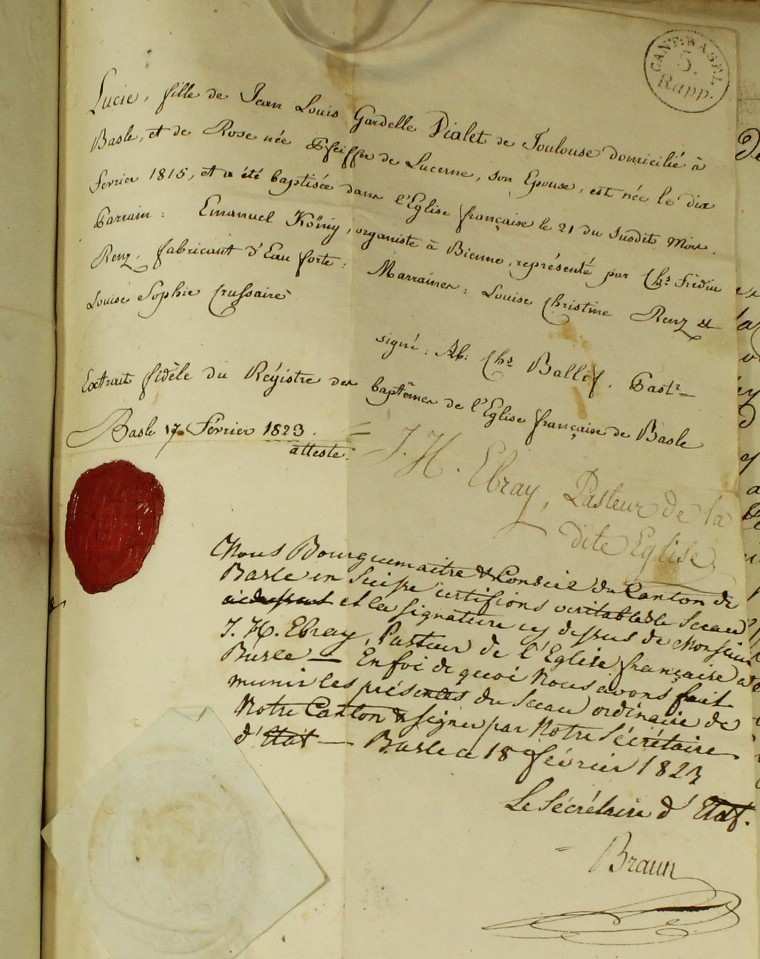 CANT: BASEL
5.
Rapp.
Lucie, fille de Jean Louis Gardelle Dialet de Toulouse domicilié à
Basle, et de Rose née Pfeiffer de Lucerne, son Epouse, est née le dix
Fevrier 1815, et a été baptisée dans l'Eglise française le 21 du susdit Mois.
Parrain: Emanuel König, organiste à Bienne, représenté par Chs.
Renz, fabricant d'Eau forte; Marraines: Louise Christine Renz et
Louise Sophie Crussaire
signé: Chs Ballif. Pastr
Extrait fidèle du Régistre des baptêmes de l'Eglise française de Basle
Basle 17 Fevrier 1823.
atteste:
J. H. Ebray, Pasteur de la
dite Eglise
Nous Bourguemaitre & Conseil du Canton de
Basle en Suisse certifions veritable le Sceau
et la signature cy dessus de Monsieur
J. H. Ebray, Pasteur de l'Eglise française de
Basle — En foi de quoi Nous avons fait
munir les présentes du Sceau ordinaire de
Notre Canton & signer par Notre Sécrétaire
d'Etat — Basle ce 18 février 1823
Le Sécrétaire d'Etat.
Braun